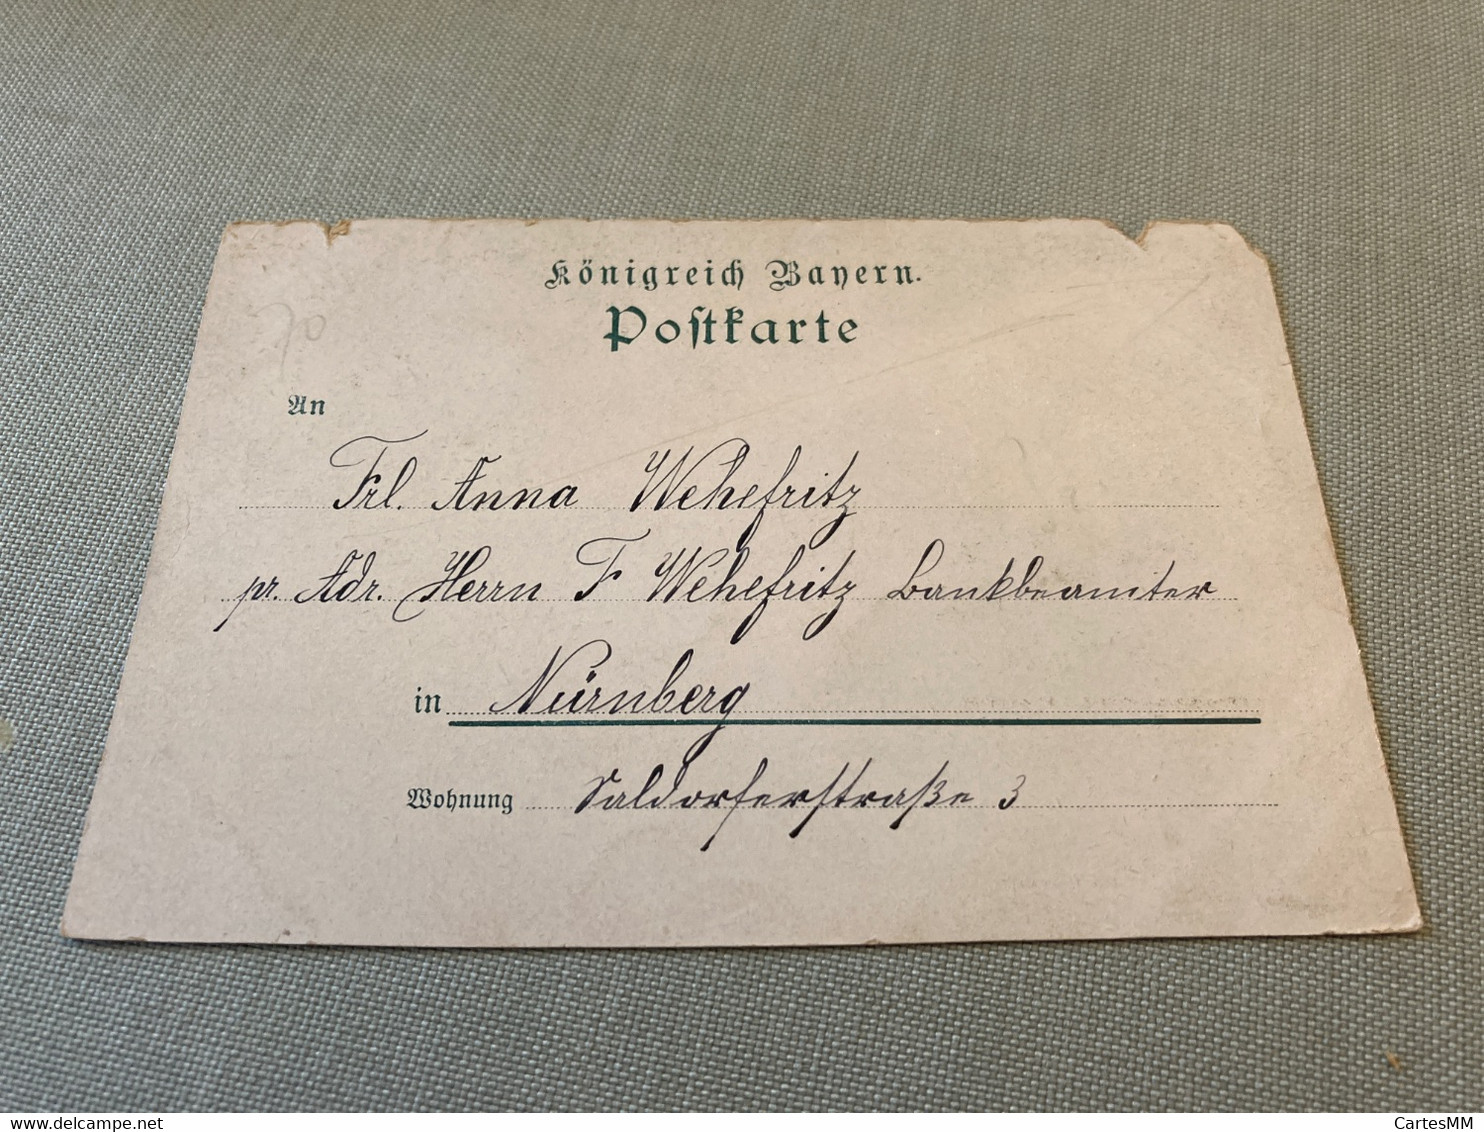 70
Königreich Bayern.
Postkarte
An
Frl. Anna Wehefritz
pr. Adr. Herrn F Wehefritz Bankbeamter
in Nürnberg
Wohnung Saldorferstraße 3
CartesMM